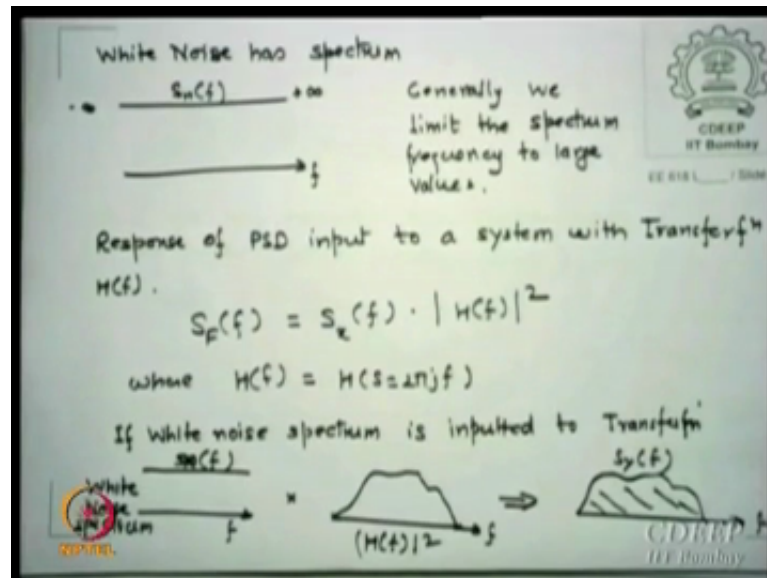 White Noise has spectrum
Sn(f)
-∞ +∞
f
Generally we
limit the spectrum
frequency to large
values.
CDEEP
IIT Bombay
EE 618 L / Slide
Response of PSD input to a system with Transfer fn
H(f).
S_F(f) = S_x(f) · |H(f)|²
where H(f) = H(s=2πjf)
If white noise spectrum is inputted to Transferfn
(f)
White
Noise
spectrum
f
×
|H(f)|²
f
⇒
Sy(f)
f
NPTEL
CDEEP
IIT Bombay